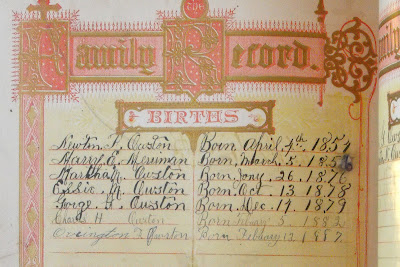 the
Family Record.
BIRTHS
Newton F. Owston Born April 4th 1854
Harry E. Merriman Born March 5 1856
Martha Owston Born Jany 26 1876
Essie M. Owston Born Oct 13 1878
George F. Owston Born Dec 14 1879
Charls H Owston Born February 3 1882
Owston Born February 12 1887